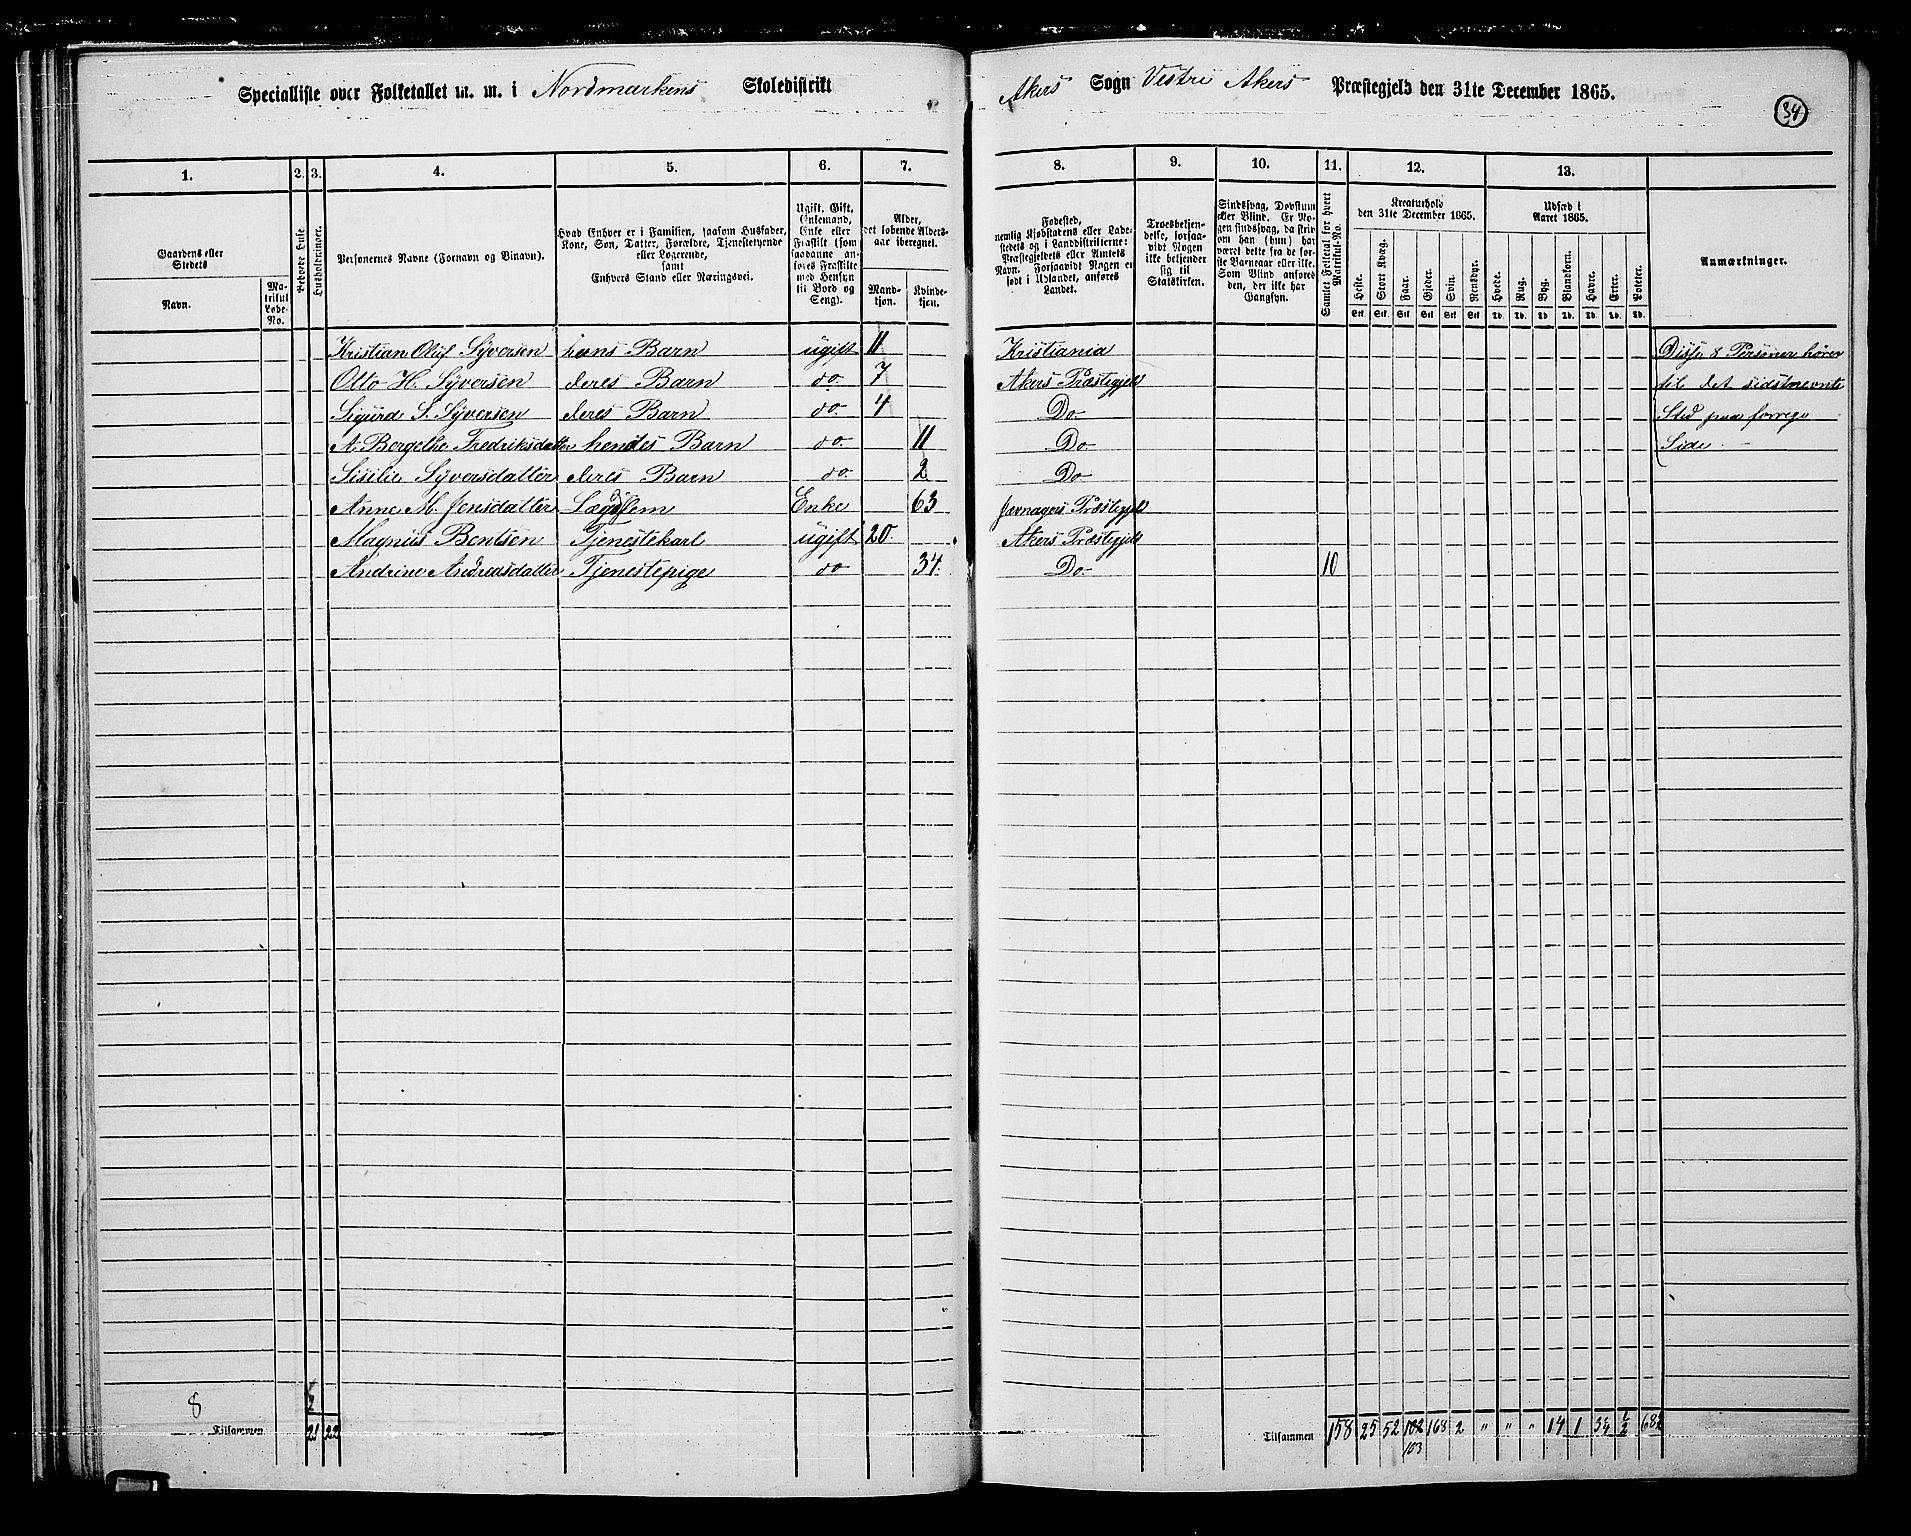 Specialliste over Folketallet m. m. i Nordmarkens Skoledistrikt Akers Sogn Vestre Akers Præstegjeld den 31te December 1865.
34
1. 2. 3. 4. 5. 6. 7. 8. 9. 10. 11. 12. 13.
Gaardens eller Stedets
Navn.
Matrikul Løbe-No.
Beboede Huse.
Husholdninger.
Personernes Navne (Fornavn og Tilnavn).
Hvad Enhver er i Familien, saasom Husfader,
Kone, Søn, Datter, Forældre, Tjenestetyende
eller Logerende,
samt
Enhvers Stand eller Næringsvei.
Ugift, Gift,
Enkemand,
Enke eller
Fraskilt (som
saadanne an-
føres Fraskilte
med Hensyn
til Bord og
Seng).
Alder,
det løbende Alders-
aar iberegnet.
Mand-
kjøn.
Kvinde-
kjøn.
Fødested,
nemlig Kjøbstadens eller Lade-
stedets og i Landdistrikterne:
Præstegjeldets eller Amtets
Navn. Forsaavidt Nogen er
født i Udlandet, anføres
Landet.
Troesbekjen-
delse, forsaa-
vidt Nogen
ikke bekjender
sig til
Statskirken.
Sindssvag, Døvstum
eller Blind. Er No-
gen sindssvag, da skriv
om han (hun) har
været dette fra de før-
ste Barneaar eller ikke.
Som Blind anføres
den, der ikke har
Gangsyn.
Samlet Folketal for hvert
Matrikul-No.
Kreaturhold
den 31te December 1865.
Heste. Stort Kvæg. Faar. Gjeder. Svin. Rensdyr.
Stk. Stk. Stk. Stk. Stk. Stk.
Udsæd i
Aaret 1865.
Hvede. Rug. Byg. Blandkorn. Havre. Erter. Poteter.
Td. Td. Td. Td. Td. Td. Td.
Anmærkninger.
Kristian Oluf Syversen hans Barn ugift 11 Kristiania Disse 8 Personer hører
Otto H. Syversen deres Barn do. 7 Akers Præstegjeld til det sidstnevnte
Sigurd S. Syversen deres Barn do. 4 Do Sted paa forrige
A. Bergethe Fredriksdatter hendes Barn do. 11 Do Side.
Sisilie Syversdatter deres Barn do. 2 Do
Anne M. Jensdatter Lægdslem Enke 63 Jævnagers Præstegjeld
Magnus Bentsen Tjenestekarl ugift 20. Akers Præstegjeld
Andrine Andreasdatter Tjenestepige do 34. Do. 10
8
Tilsammen 21 22
Tilsammen 158 25 52 102 168 2 " " " 17 1 34 1/2 682
103